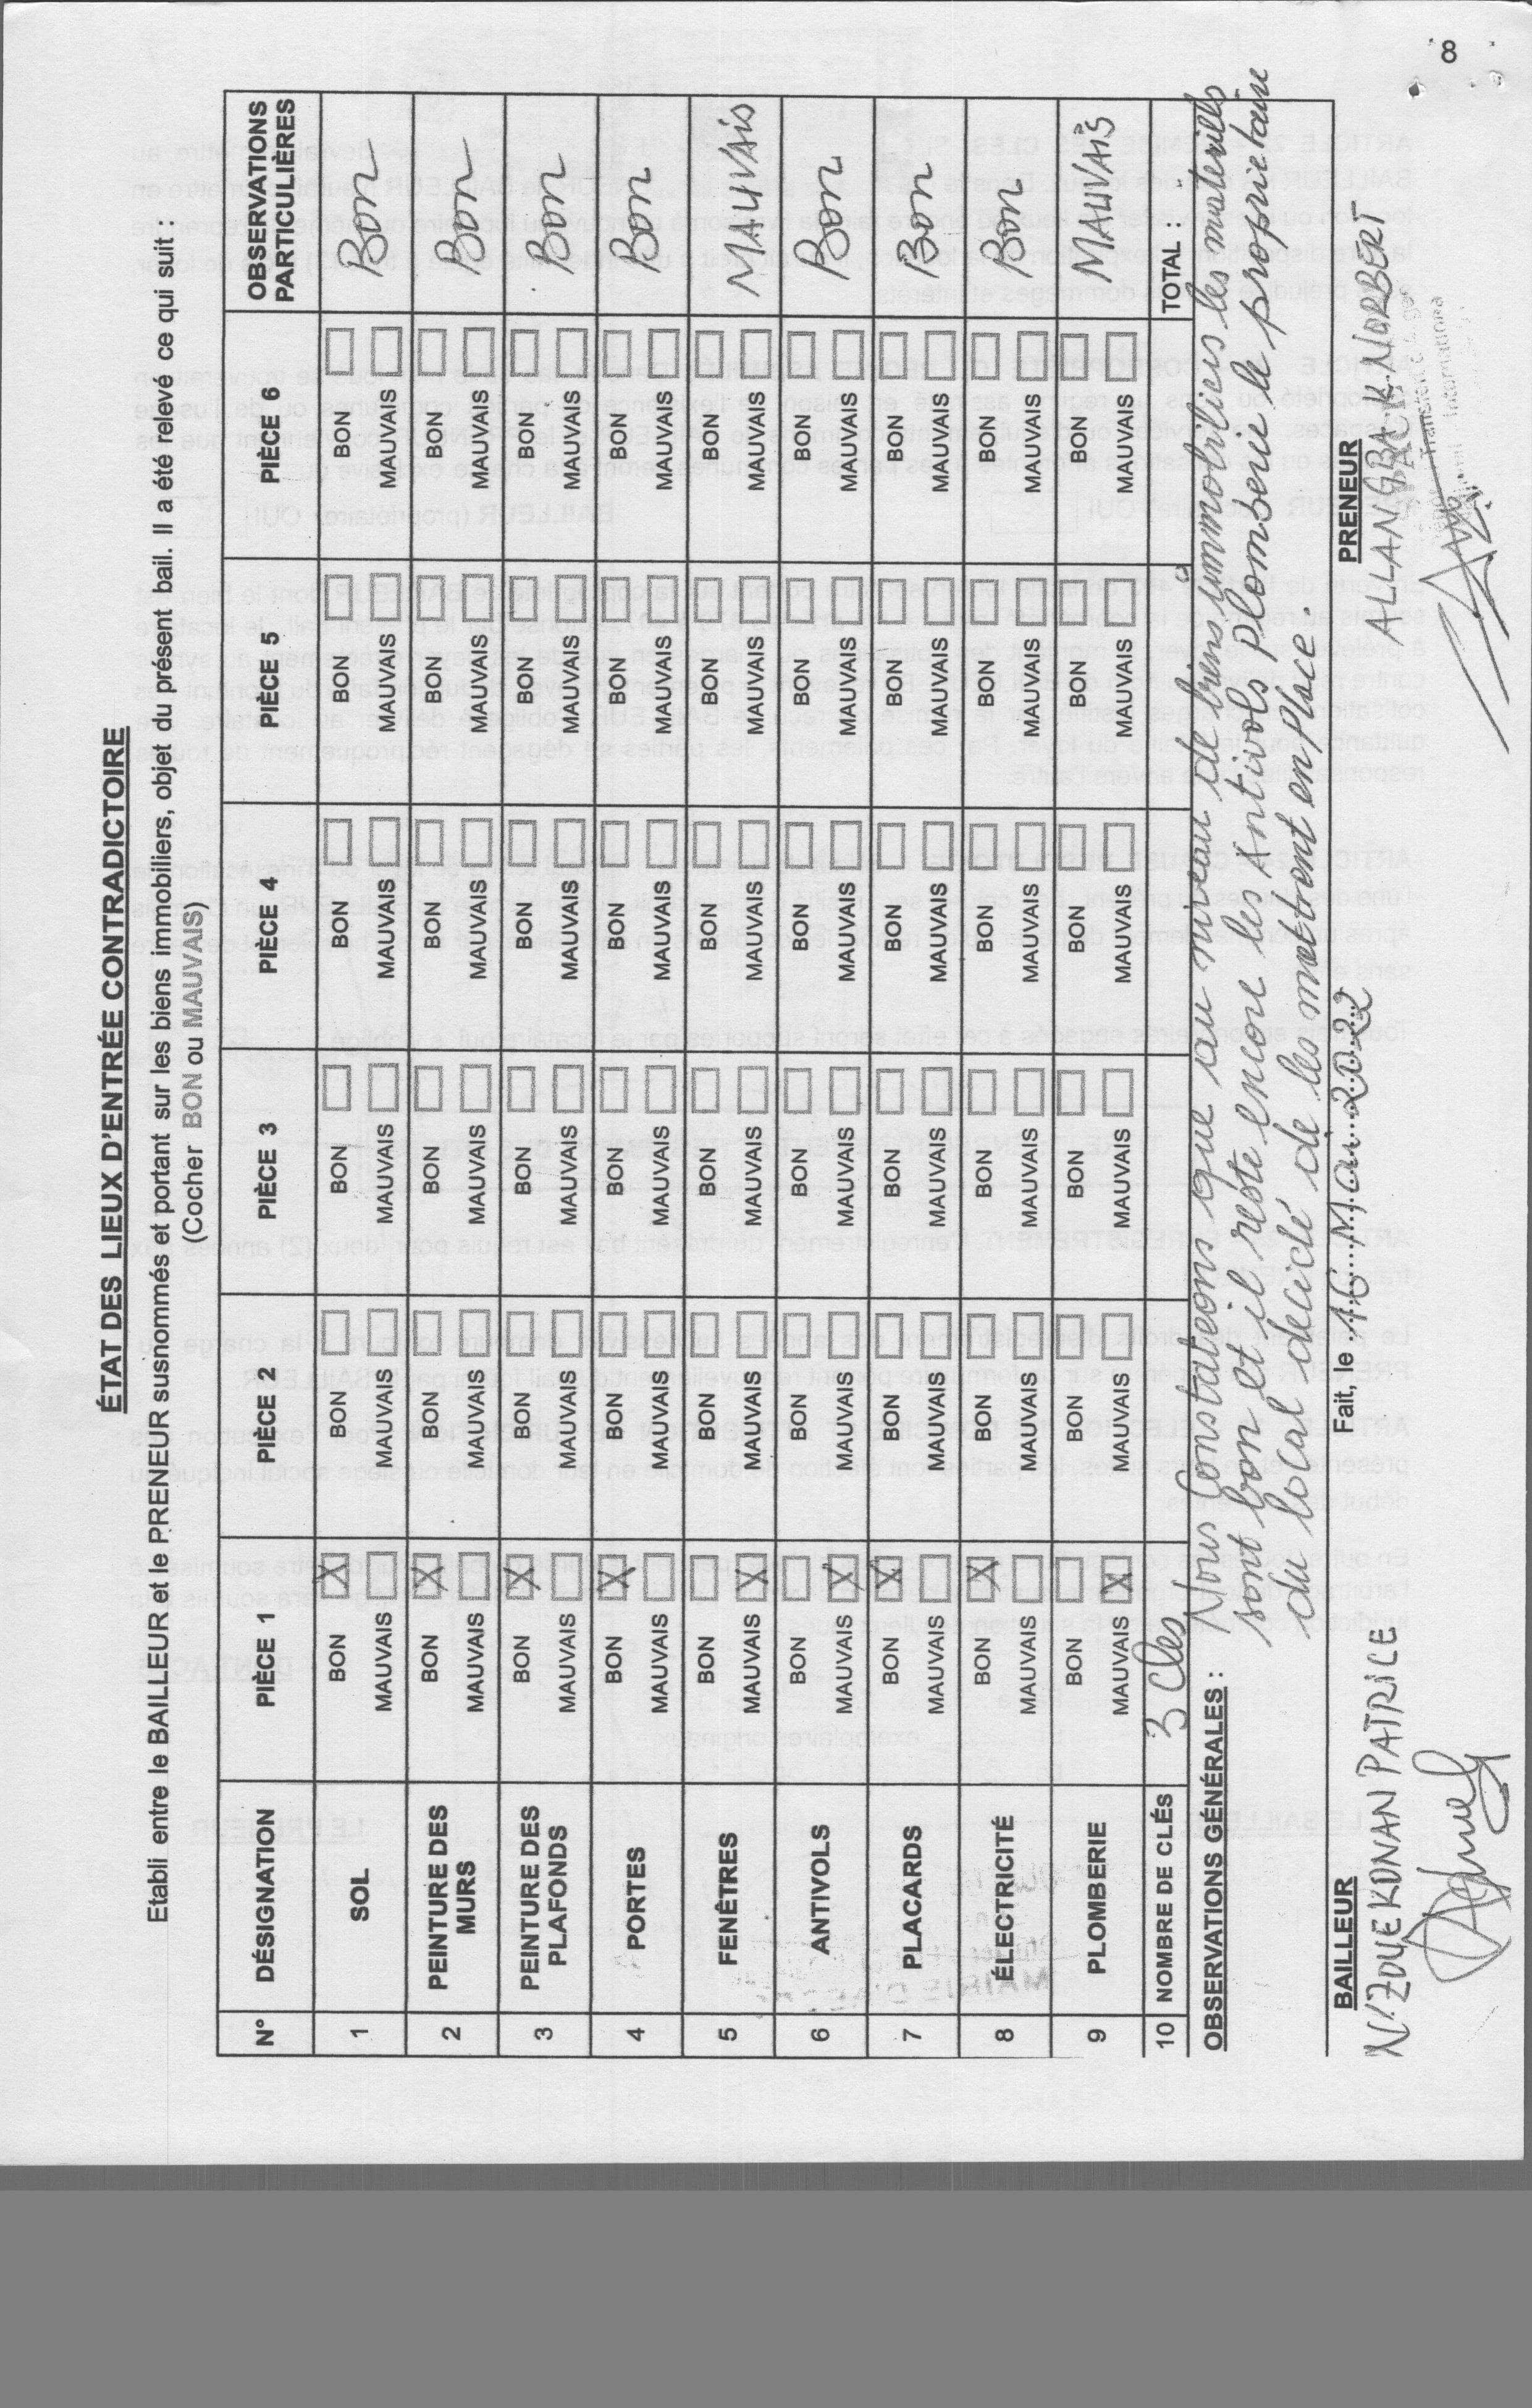 8
ÉTAT DES LIEUX D'ENTRÉE CONTRADICTOIRE
Etabli entre le BAILLEUR et le PRENEUR susnommés et portant sur les biens immobiliers, objet du présent bail. Il a été relevé ce qui suit :
(Cocher BON ou MAUVAIS)
N° DÉSIGNATION PIÈCE 1 PIÈCE 2 PIÈCE 3 PIÈCE 4 PIÈCE 5 PIÈCE 6 OBSERVATIONS PARTICULIÈRES
1 SOL BON X BON BON BON BON BON Bon
MAUVAIS MAUVAIS MAUVAIS MAUVAIS MAUVAIS MAUVAIS
2 PEINTURE DES MURS BON X BON BON BON BON BON Bon
MAUVAIS MAUVAIS MAUVAIS MAUVAIS MAUVAIS MAUVAIS
3 PEINTURE DES PLAFONDS BON X BON BON BON BON BON Bon
MAUVAIS MAUVAIS MAUVAIS MAUVAIS MAUVAIS MAUVAIS
4 PORTES BON X BON BON BON BON BON Bon
MAUVAIS MAUVAIS MAUVAIS MAUVAIS MAUVAIS MAUVAIS
5 FENÊTRES BON BON BON BON BON BON MAUVAis
MAUVAIS X MAUVAIS MAUVAIS MAUVAIS MAUVAIS MAUVAIS
6 ANTIVOLS BON BON BON BON BON BON Bon
MAUVAIS X MAUVAIS MAUVAIS MAUVAIS MAUVAIS MAUVAIS
7 PLACARDS BON X BON BON BON BON BON Bon
MAUVAIS MAUVAIS MAUVAIS MAUVAIS MAUVAIS MAUVAIS
8 ÉLECTRICITÉ BON X BON BON BON BON BON Bon
MAUVAIS MAUVAIS MAUVAIS MAUVAIS MAUVAIS MAUVAIS
9 PLOMBERIE BON BON BON BON BON BON MAUVAiS
MAUVAIS X MAUVAIS MAUVAIS MAUVAIS MAUVAIS MAUVAIS
10 NOMBRE DE CLÉS 3 Clés TOTAL :
OBSERVATIONS GÉNÉRALES : Nous Constations que au niveau de biens immobiliers les materiells
sont bon et il reste encore les Antivols plomberie le proprietaire
du local décidé de les mettrent en Place.
BAILLEUR Fait, le 16 Mai 2022 PRENEUR
N'ZOUE KONAN PATRICE ALLANGBA K. NORBERT